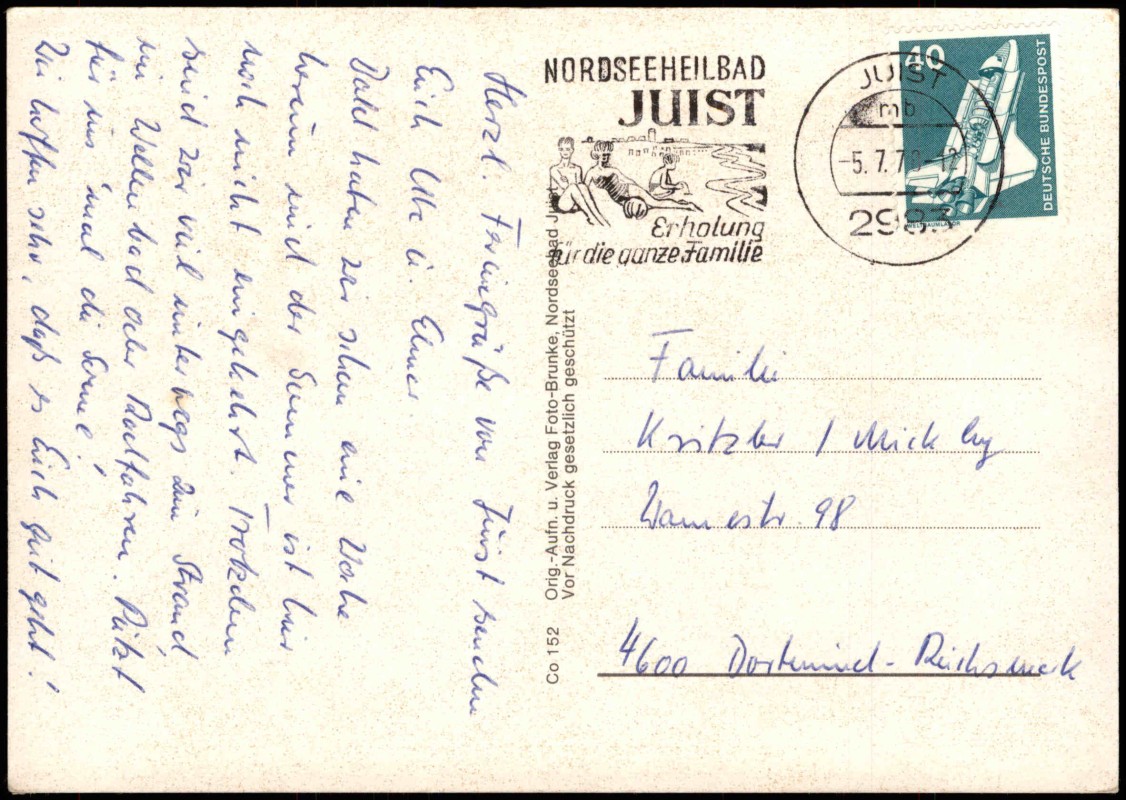 NORDSEEHEILBAD
JUIST
Erholung
für die ganze Familie
JUIST
mb
-5.7.7
2983
40
DEUTSCHE BUNDESPOST
WELTRAUMLABOR
Herzl. Feriengrüße von Juist senden
Euch Ute u.
Bald haben wir schon eine Woche
herum und der Sommer ist hier
noch nicht eingekehrt. Trotzdem
sind wir viel unterwegs zum Strand,
ins Wellenbad oder Radfahren. Putzt
für uns mal die Sonne!
Wir hoffen sehr, daß es Euch gut geht!
Co 152 Orig.-Aufn. u. Verlag Foto-Brunke, Nordseebad Juist
Vor Nachdruck gesetzlich geschützt
Familie
Kritzler / Mickley
98
4600 Dortmund-Reichsmark